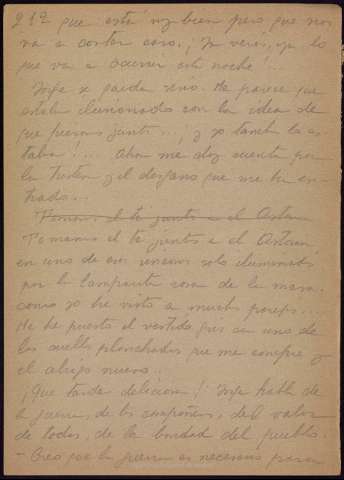 212 que está muy bien pero que nos
va a costar caro. ¡Ya verás, ya lo
que va a ocurrir esta noche!..
Jorge se queda serio. Me parece que
estaba ilusionado con la idea de
que fueramos juntos...; y yo también lo es
taba!... Ahora me doy cuenta por
la tristeza y el desgano que me ha en
trado...
Tomamos el té juntos en el Aston
Tomamos el té juntos en el
en uno de esos rincones solo iluminados
por la lamparita rosa de la mesa.
como yo he visto a muchas parejas...
Me he puesto el vestido gris con uno de
los cuellos planchados que me compré y
el abrigo nuevo...
¡Que tarde deliciosa! Jorge habla de
la guerra, de los compañeros, del valor
de todos, de la bondad del pueblo.
- Creo que la guerra es necesaria para